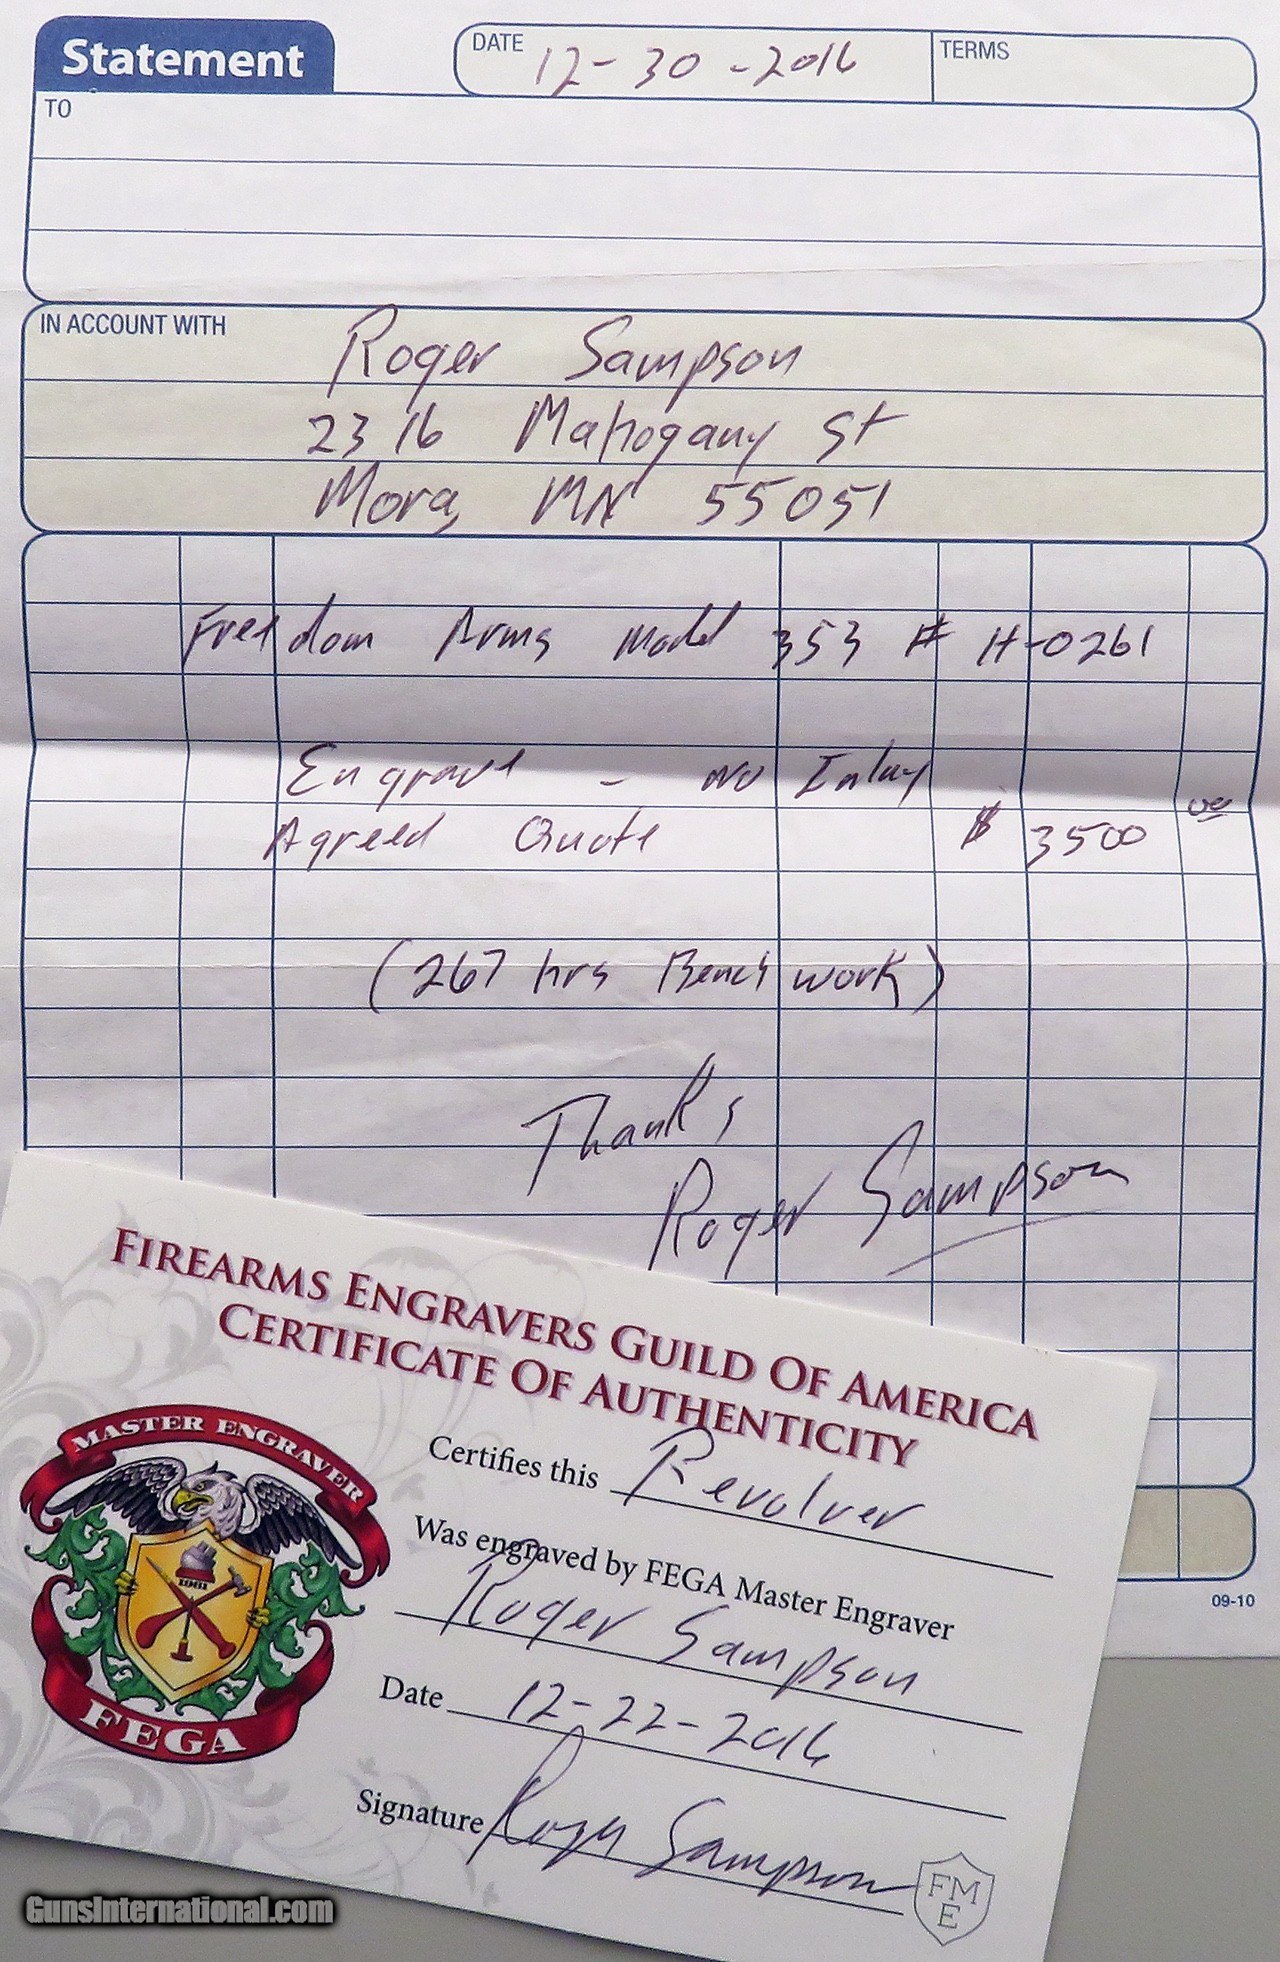 Statement
DATE 12-30-2016 TERMS
TO
IN ACCOUNT WITH
Roger Sampson
2316 Mahogany St
Mora, MN 55051
Freedom Arms Model 353 # H-0261
Engrave - No Inlay
Agreed Quote $ 3500 00
(267 hrs Bench work)
Thanks
Roger Sampson
FIREARMS ENGRAVERS GUILD OF AMERICA
CERTIFICATE OF AUTHENTICITY
MASTER ENGRAVER
1981
FEGA
Certifies this Revolver
Was engraved by FEGA Master Engraver
Roger Sampson
Date 12-22-2016
Signature Roger Sampson
FM
E
09-10
GunsInternational.com